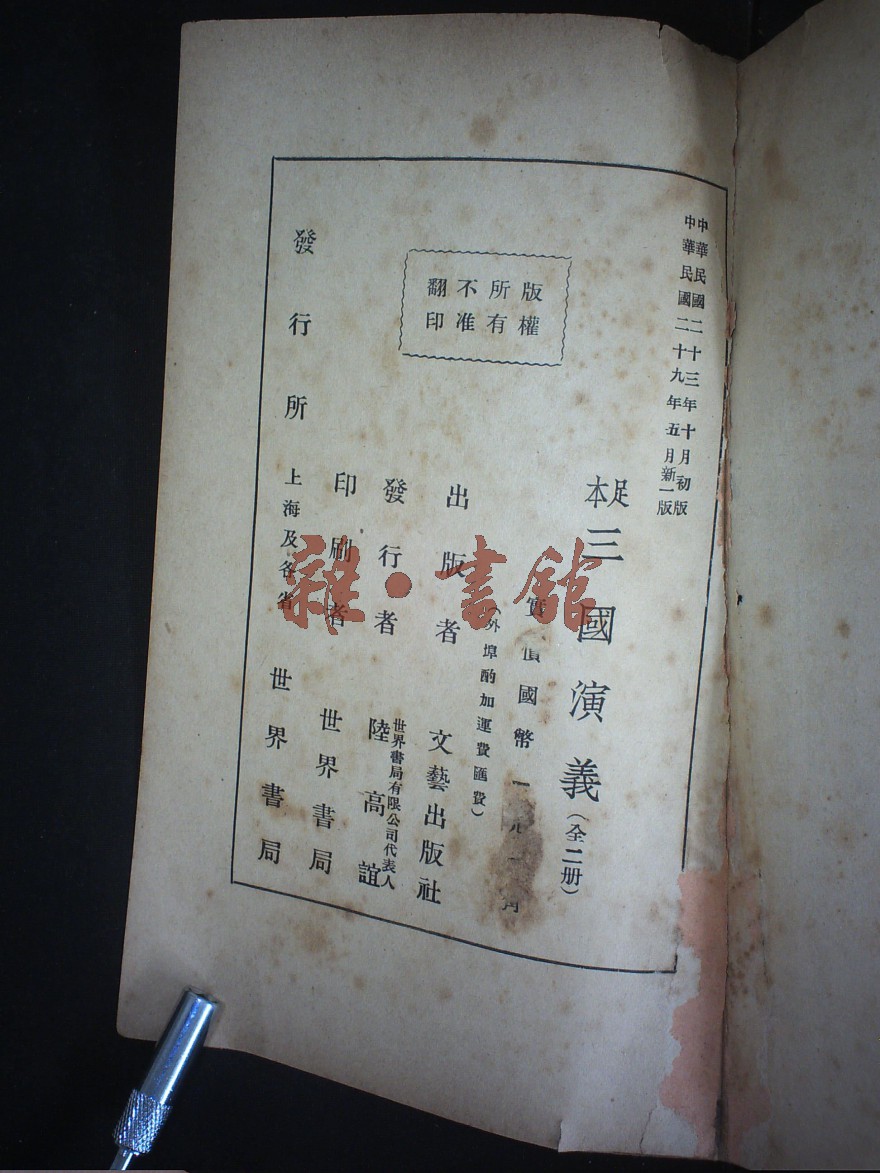 中華民國二十三年十月初版
中華民國二十九年五月新一版
足本三國演義（全二册）
實價國幣一元
角
（外埠酌加運費匯費）
版權
所有
不准
翻印
出版者 文藝出版社
發行者 世界書局有限公司代表人 陸高誼
印刷者 世界書局
發行所 上海及各省 世界書局
雜·書館